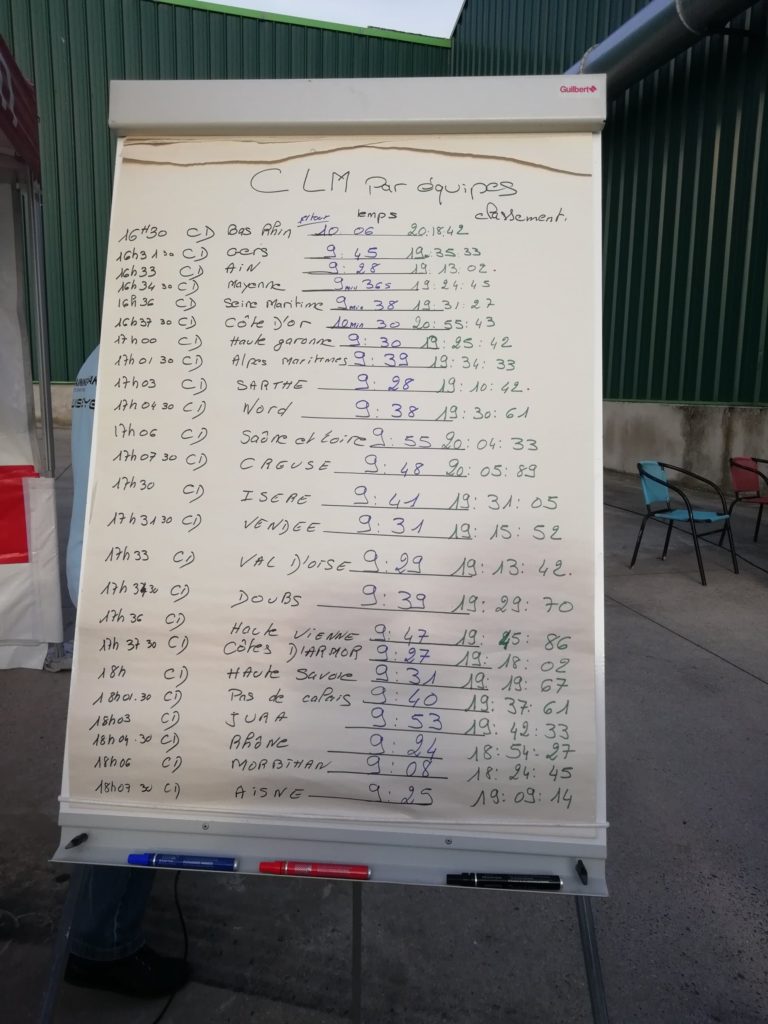 Guilbert
CLM Par équipes
1er tour temps classement.
16H30 CD Bas Rhin 10 06 20:18,42
16h31 30 CD Gers 9:45 19.35.33
16h33 CD AiN 9:28 19:13:02.
16h34 30 CD Mayenne 9min 36s 19:24:45
16h36 CD Seine Maritime 9min 38 19:31:27
16h37 30 CD Côte D'or 10min 30 20:55:43
17h00 CD Haute garonne 9:30 19:25:42
17h01 30 CD Alpes Maritimes 9:39 19:34:33
17h03 CD SARTHE 9:28 19:10:42.
17h04 30 CD Nord 9:38 19:30:61
17h06 CD Saône et Loire 9:55 20:04:33
17h07 30 CD CREUSE 9:48 20:05:89
17h30 CD ISERE 9:41 19:31:05
17h31 30 CD VENDEE 9:31 19:15:52
17h33 CD VAL D'OISE 9:29 19:13:42.
17h34 30 CD DOUBS 9:39 19:29:70
17h36 CD Haute VIENNE 9:47 19:45:86
17h 37 30 CD CÔTES D'ARMOR 9:27 19:18:02
18h CD HAUTE SAVOIE 9:31 19:19:67
18h01.30 CD Pas de calais 9:40 19:37:61
18h03 CD JURA 9:53 19:42:33
18h04.30 CD Rhône 9:24 18:54:27
18h06 CD MORBIHAN 9:08 18:24:45
18h07 30 CD AiSNE 9:25 19:09:14